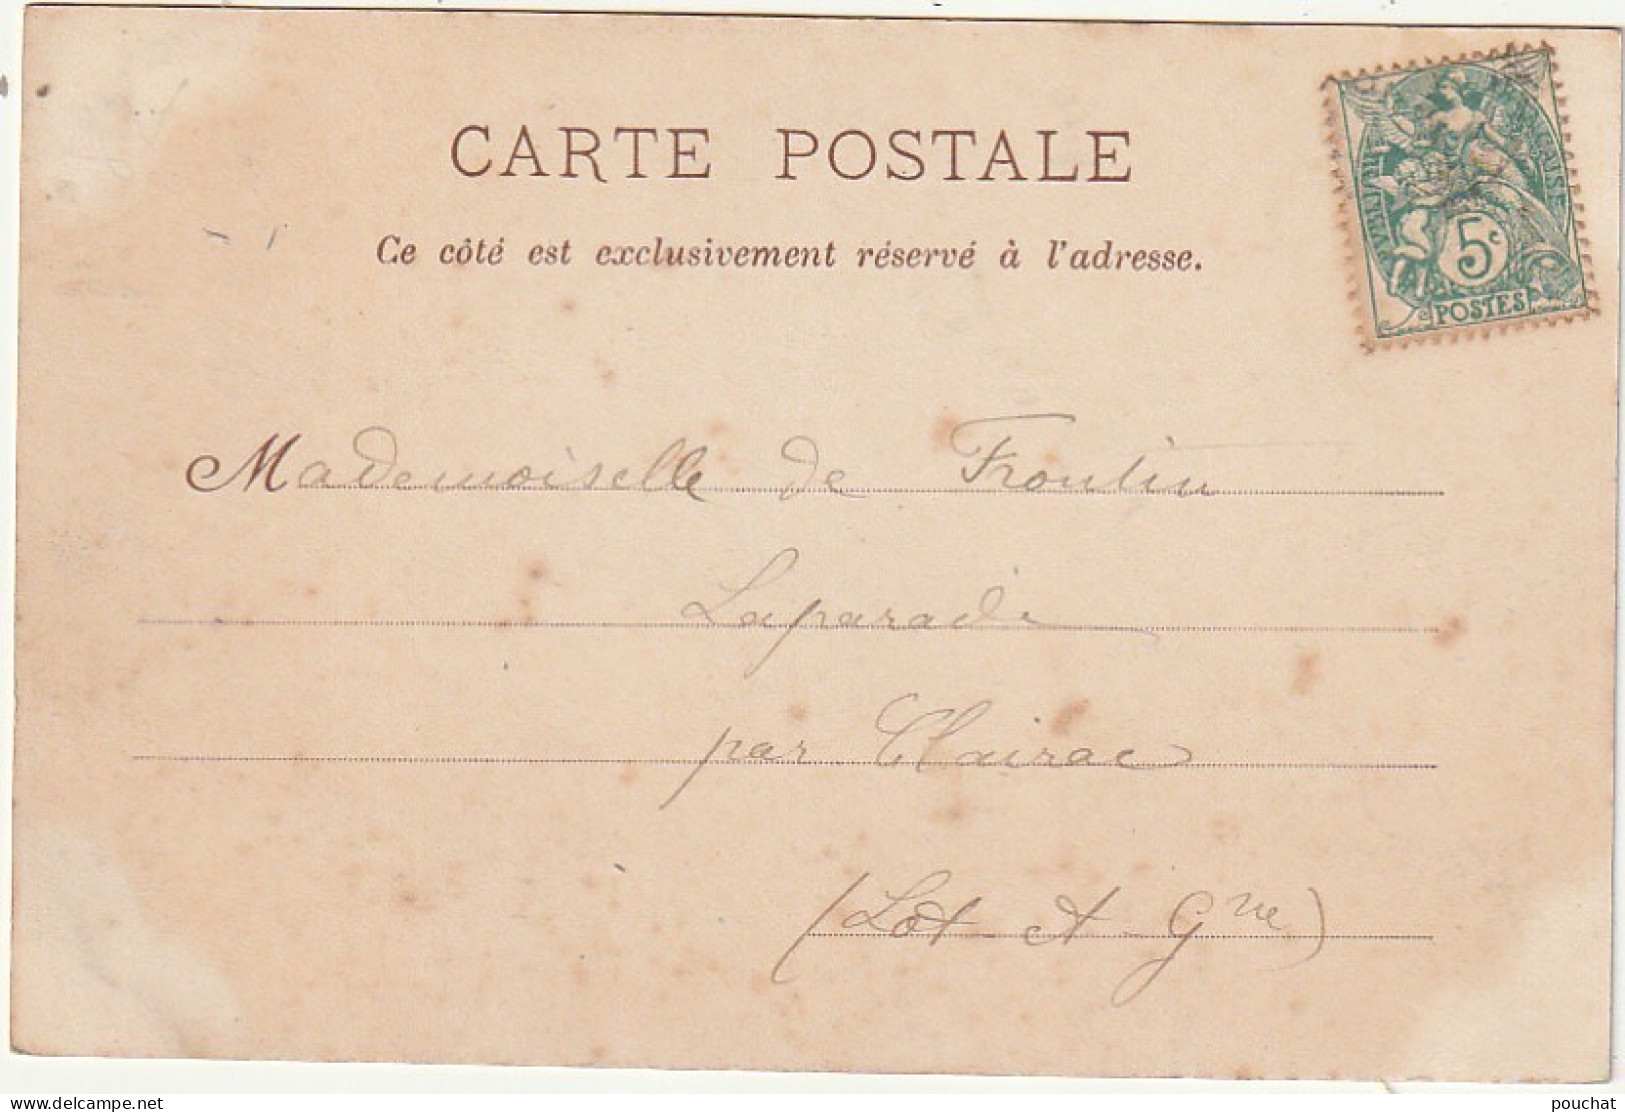 CARTE POSTALE
Ce côté est exclusivement réservé à l'adresse.
RÉPUBLIQUE FRANÇAISE
5c
POSTES
Mademoiselle de Frontin
Laparade
par Clairac
(Lot & Gne)
www.delcampe.net
pouchat